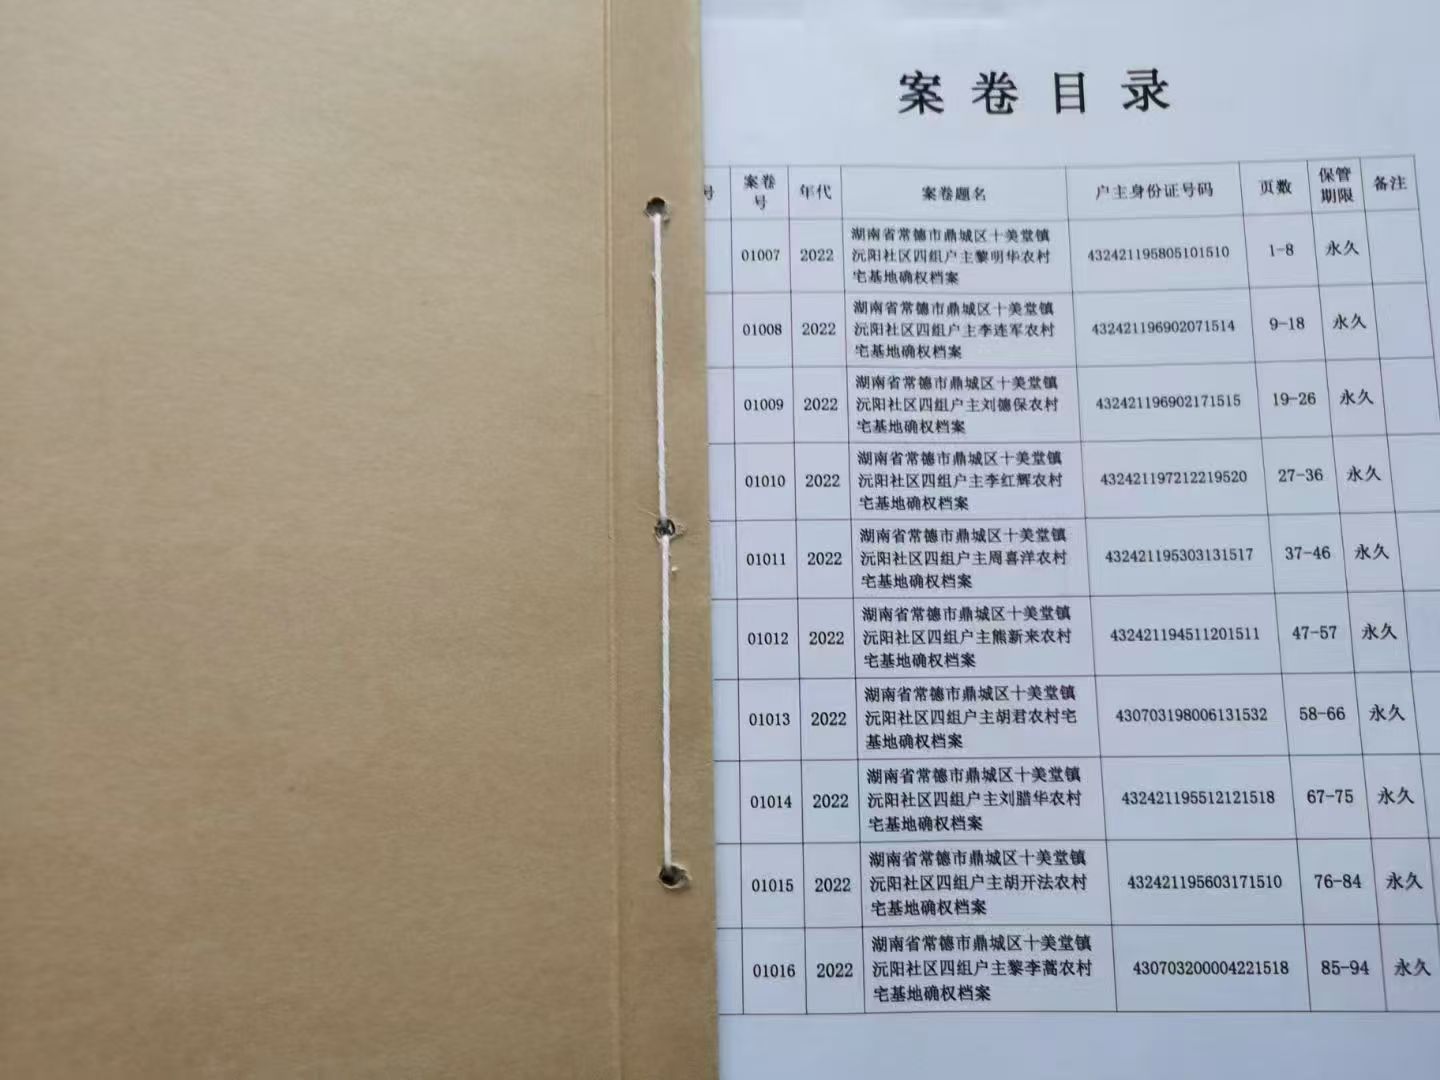 案卷目录
号 案卷号 年代 案卷题名 户主身份证号码 页数 保管期限 备注
01007 2022 湖南省常德市鼎城区十美堂镇 432421195805101510 1-8 永久
沅阳社区四组户主黎明华农村
宅基地确权档案
01008 2022 湖南省常德市鼎城区十美堂镇 432421196902071514 9-18 永久
沅阳社区四组户主李连军农村
宅基地确权档案
01009 2022 湖南省常德市鼎城区十美堂镇 432421196902171515 19-26 永久
沅阳社区四组户主刘德保农村
宅基地确权档案
01010 2022 湖南省常德市鼎城区十美堂镇 432421197212219520 27-36 永久
沅阳社区四组户主李红辉农村
宅基地确权档案
01011 2022 湖南省常德市鼎城区十美堂镇 432421195303131517 37-46 永久
沅阳社区四组户主周喜洋农村
宅基地确权档案
01012 2022 湖南省常德市鼎城区十美堂镇 432421194511201511 47-57 永久
沅阳社区四组户主熊新来农村
宅基地确权档案
01013 2022 湖南省常德市鼎城区十美堂镇 430703198006131532 58-66 永久
沅阳社区四组户主胡君农村宅
基地确权档案
01014 2022 湖南省常德市鼎城区十美堂镇 432421195512121518 67-75 永久
沅阳社区四组户主刘腊华农村
宅基地确权档案
01015 2022 湖南省常德市鼎城区十美堂镇 432421195603171510 76-84 永久
沅阳社区四组户主胡开法农村
宅基地确权档案
01016 2022 湖南省常德市鼎城区十美堂镇 430703200004221518 85-94 永久
沅阳社区四组户主黎李蒿农村
宅基地确权档案